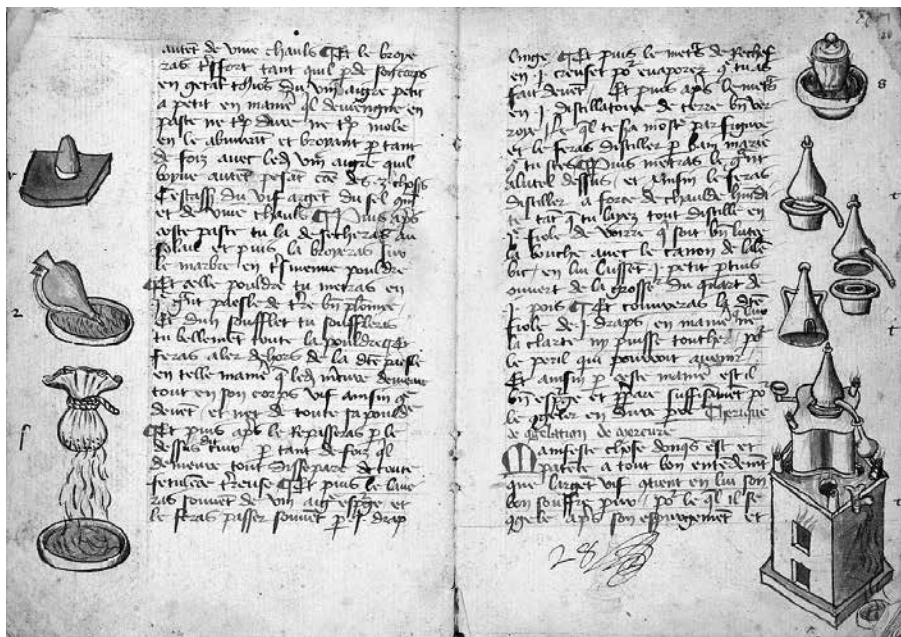 autēt de vive chauls Et le broye
ras tsfort tant quil pde son corps
en getāt to9urs du vin aigre petit
a petit en maniē ql deviengne en
paste ne tp dure ne tp mole
en le abuvrāt et broyant p tant
de foiz avec ledᵗ vin aigre quil
boyve autēt pesāt cōe des .3. choses
du vif argēt du sel
et de vive chauls Puis aps
ceste paste tu la desecheras au
solail et puis la broyeras sus
le marbre en tsmenue pouldre
Et celle pouldre tu metras en
j. grāt paesle de tre bn plomee
Et dun soufflet tu souffleras
tu bellemēt toute la pouldre Et
feras aler dehors de la dte paesle
en telle maniē q ledᵗ m̄cure demeure
tout en son corps vif ainsin qe
devāt et net de toute sa pouldre
Et puis aps le repasseras p le
dessusdit p tant de foiz ql
demeure tout dissepare de toute
terreuse Et puis le lave
ras souvēt de vin aigre espge et
le feras passer souvēt p j. drap
linge Et puis le metᵗs de rechef
en j. creuset po evaporez qe tu as
fait devāt Et puis aps le metᵗs
en j. distillatoire de terre bn ver
roye le ql te sa mōstre par figure
et le feras distiller p bain marie
q tu scès Puis metras le grāt
alutel dessus et ainsin le feras
distiller a force de chaulde humidi
te tāt q tu layez tout distille en
j. fiole de voirre q soit bn lutee
la bouche avec le canon de lalē
bic en lui laissēt j. petit ptuis
ouvert de la grosser du quart de
j. pois Et couvreras la dte
fiole de j. draps en maniē qe
la clarte ny puisse toucher po
le peril qui pourroit avenir
Et ainsin p ceste maniē est il
bn espge et ppare suffisāmēt po
le ggeler en dure
de ggelation de mercure
Manifeste chose donqs est et
patēte a tout bon entendemēt
que largēt vif quiert en lui son
bon souffre po le ql il se
ggele aps son espurgement et
28